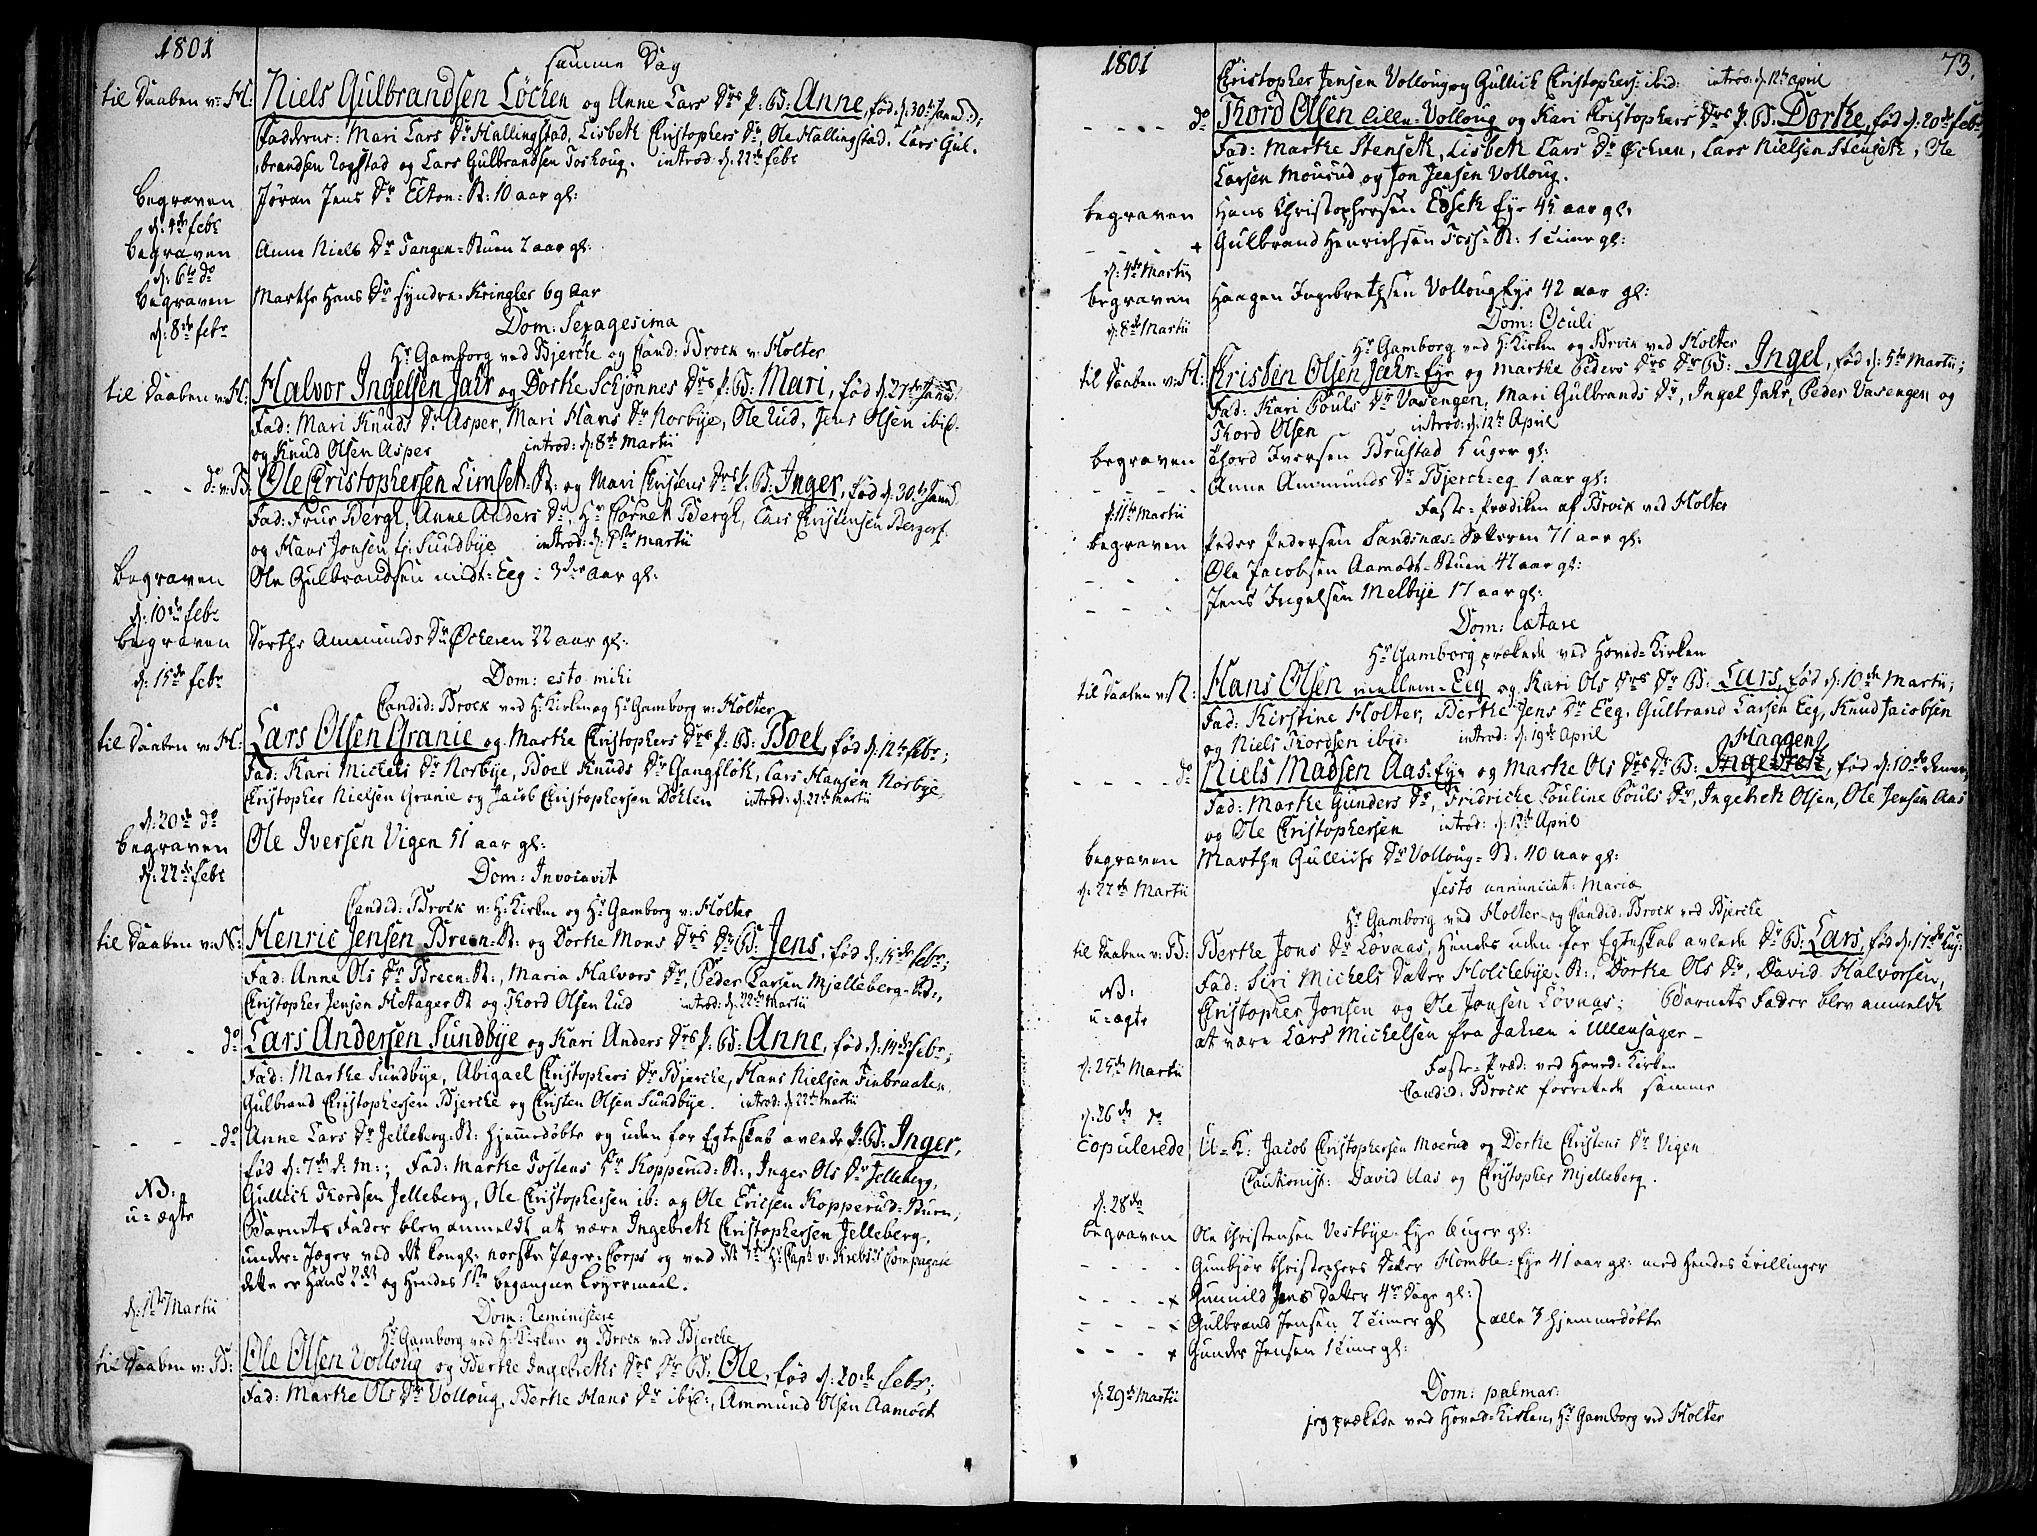 1801
samme Dag
til Daaben v: H: Niels Gulbrandsen Løcken og Anne Lars Drs P. B: Anne, fød d: 30te Janu:
Fadderne: Mari Lars Dr Hallingstad, Lisbeth Christophers Dr, Ole Hallingstad, Lars Gul-
brandsen Rogstad og Lars Gulbrandsen Toshoug. introd: d: 22de Febr
begraven Jøran Jens Dr Elton-St: 10 aar gl:
d: 4de Febr
begraven Anne Niels Dr Tangen-Stuen 2 aar gl:
d: 6te do
begraven Marthe Hans Dr Syndre-Kringler 69 aar
d: 8de Febr Dom: Sexagesima
Hr Gamborg ved Bjercke og Cand: Brock v: Holter
til Daaben v: H: Halvor Ingelsen Jahr og Dorthe Schjønnes Drs P. B: Mari, fød d: 27de Janu:
Fad: Mari Knuds Dr Asper, Mari Hans Dr Norbye, Ole Lud, Jens Olsen ibid:
og Knud Olsen Asper introd: d: 8de Martii
- - - do v: B: Ole Christophersen Limseth-St: og Mari Christens Drs P. B: Inger, fød d: 30te Janu:
Fad: Frue Bergh, Anne Anders Dr, Hr Cornet Bergh, Lars Christensen Berger
og Hans Jonsen tj: Sundbye introd: d: 1ste Martii
begraven Ole Gulbrandsen midt-Eeg: 3de aar gl:
d: 10de Febr
begraven Dorthe Ammunds Dr Øckeren 22 aar gl:
d: 15de Febr Dom: esto mihi
Candid: Brock ved H: Kirken og Hr Gamborg v: Holter
til Daaben v: H: Lars Olsen Granie og Marthe Christophers Drs P. B: Boel, fød d: 12te Febr;
Fad: Kari Michels Dr Norbye, Boel Knuds Dr Gangfløth, Lars Hansen Norbye,
Christopher Nielsen Granie og Jacob Christophersen Døhlen introd: d: 22de Martii
d: 20de do
begraven Ole Iversen Vigen 51 aar gl:
d: 22de Febr Dom: Invocavit
Candid: Brock v: H: Kirken og Hr Gamborg v: Holter
til Daaben v: N: Henric Jensen Breen-St: og Dorthe Mons Drs Dr B: Jens, fød d: 15de Febr;
Fad: Anne Ols Dr Breen-St:, Maria Halvors Dr, Peder Larsen Mjelleberg-St:,
Christopher Jensen Hetager St og Thord Olsen Lud introd: d: 22de Martii
- - - do Lars Andersen Sundbye og Kari Anders Drs P. B: Anne, fød d: 14de Febr;
Fad: Marthe Sundbye, Abigael Christophers Dr Bjercke, Hans Nielsen Finbraaten,
Gulbrand Christophersen Bjercke og Christen Olsen Sundbye. introd: d: 22de Martii
- - - do Anne Lars Dr Jelleberg-St: hjemmedøbte og uden for Egteskab avlede P. B: Inger,
fød d: 7de d: M:; Fad: Marthe Tostens Dr Kopperud-St:, Inger Ols Dr Jelleberg,
NB: Gullich Thordsen Jelleberg, Ole Christophersen ib: og Ole Ericsen Kopperud-Stuen;
u-ægte Barnets Fader blev anmeldt at være Ingebreth Christophersen Jelleberg,
under-Jæger ved det kongl: norske Jæger-Corps og ved det Hr Capt: v: Krebs's Compagnie
dette er Hans 2det og Hendes 1ste begangne Leyermaal.
d: 1ste Martii Dom: Reminiscere
Hr Gamborg ved H: Kirken og Brock ved Bjercke
til Daaben v: B: Ole Olsen Volloug og Berthe Ingebreths Drs Dr B: Ole, fød d: 20de Febr;
Fad: Marthe Ols Dr Volloug, Berthe Hans Dr ibid:, Ammund Olsen Aamodt
1801 73.
Christopher Jensen Volloug og Gullich Christophers: ibid: introd: d: 12te April
- - - do Thord Olsen Lille-Volloug og Kari Christophers Drs P. B: Dorthe, fød d: 20de Febr
Fad: Marthe Stenseth, Lisbeth Lars Dr Øchern, Lars Nielsen Stenseth, Ole
Larsen Mourud og Jon Jensen Volloug.
begraven Hans Christophersen Edseth Eye 45 aar gl:
- - + Gulbrand Henrichsen Foss-St: 1 time gl:
d: 4de Martii
begraven Haagen Ingebrethsen Volloug Eye 42 aar gl:
d: 8de Martii Dom: Oculi
Hr Gamborg ved H: Kirken og Brock ved Holter
til Daaben v: H: Christen Olsen Jahr-Eye og Marthe Peders Drs Dr B: Ingel, fød d: 5te Martii;
Fad: Kari Pouls Dr Vasengen, Mari Gulbrands Dr, Ingel Jahr, Peder Vasengen og
Thord Olsen introd: d: 12te April
begraven Thord Iversen Brustad 5 uger gl:
- - - Anne Ammunds Dr Bjerch-eg 1 aar gl:
d: 11te Martii Faste-Prædiken af Brock ved Holter
begraven Peder Pedersen Sandsnæs-Sætteren 71 aar gl:
- - - Ole Jacobsen Aamodt-Stuen 47 aar gl:
- - - Jens Ingelsen Melbye 17 aar gl:
Dom: Lætare
Hr Gamborg prækede ved Hoved-Kirken
til Daaben v: N: Hans Olsen mellem-Eeg og Kari Ols Drs Dr B: Lars, fød d: 10de Martii;
Fad: Kirstine Holter, Berthe Jens Dr Eeg, Gulbrand Larsen Eeg, Knud Jacobsen
og Niels Thordsen ibid: introd: d: 19de April
Haagen
- - - do Niels Madsen Aas-Eye og Marthe Ols Drs Dr B: Ingebreth, fød d: 10de
Fad: Marthe Gunders Dr, Fridriche Pouline Pouls Dr, Ingebreth Olsen, Ole Jensen Aas
og Ole Christophersen introd: d: 12te April
begraven Marthe Gullichs Dr Volloug-St: 40 aar gl:
d: 22de Martii festo annunciat: Mariæ
Hr Gamborg ved Holter og Candid: Brock ved Bjercke
til Daaben v: B: Berthe Jons Dr Løvaas, Hendes uden for Egteskab avlede Dr B: Lars, fød d: 17de
NB: Fad: Siri Michels Datter Holckebye-St:, Dorthe Ols Dr, David Halvorsen,
u-ægte Christopher Jonsen og Ole Jonsen Løvaas; Barnets Fader blev anmeldt
at være Lars Michelsen fra Jahren i Ullensager -
d: 25de Martii Faste-Præd: ved Hoved-Kirken
Candid: Brock forrettede samme
d: 26de do
copulerede U-K: Jacob Christophersen Moerud og Dorthe Christens Dr Vigen
Cautionist: David Aas og Christopher Mjelleberg.
d: 28de
begraven Ole Christensen Vestbye-Eye uger gl:
- - - Gunbjør Christophers Datter Homble-Eye 41 aar gl: med Hendes Trillinger
- - - + Gunnild Jens Datter 4re Dage gl:
- - - + Gulbrand Jensen 7 Timer gl } alle 3 hjemmedøbte
- - - + Gunder Jensen 1 Time gl:
d: 29de Martii Dom: palmar:
jeg prækede ved Hoved-Kirken, Hr Gamborg ved Holter